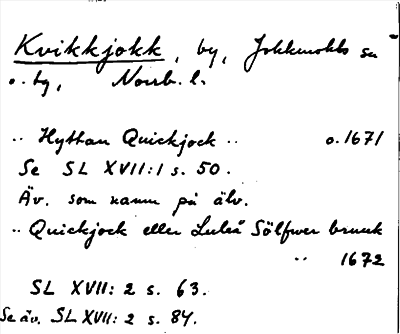 Kvikkjokk, by, Jokkmokks sn
o. by, Norrb. l.
.. Hyttan Quickjock .. o. 1671
Se SL XVII:1 s. 50.
Äv. som namn på älv.
.. Quickjock eller Luleå Sölfwer bruuk
.. 1672
SL XVII: 2 s. 63.
Se äv. SL XVII: 2 s. 84.